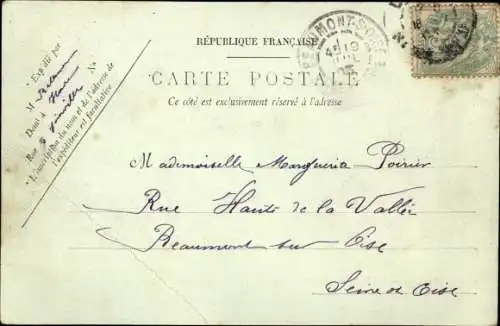 RÉPUBLIQUE FRANÇAISE
CARTE POSTALE
Ce côté est exclusivement réservé à l'adresse
BEAUMONT-S-OISE
19
Expédié par
M
Dont
N°
Rue
L'inscription du nom et de l'adresse de
l'expéditeur est facultative
Mademoiselle Marguerite Poirier
Rue Haute de la Vallée
Beaumont sur Oise
Seine et Oise